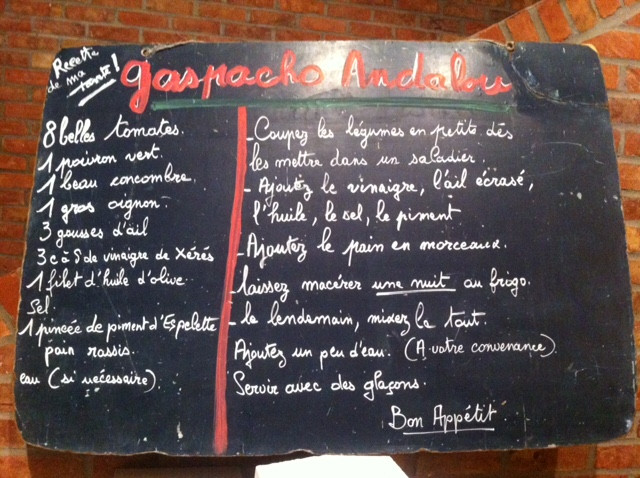 Recette de ma tante!
gaspacho Andalou
8 belles tomates.
1 poivron vert.
1 beau concombre.
1 gros oignon.
3 gousses d'ail
3 c à S de vinaigre de Xérés
1 filet d'huile d'olive
Sel
1 pincée de piment d'Espelette
pain rassis.
eau (si nécessaire)
- Coupez les légumes en petits dés
les mettre dans un saladier.
- Ajoutez le vinaigre, l'ail écrasé,
l'huile, le sel, le piment
- Ajoutez le pain en morceaux.
- laissez macérer une nuit au frigo.
- le lendemain, mixez le tout.
Ajoutez un peu d'eau. (A votre convenance)
Servir avec des glaçons.
Bon Appétit.